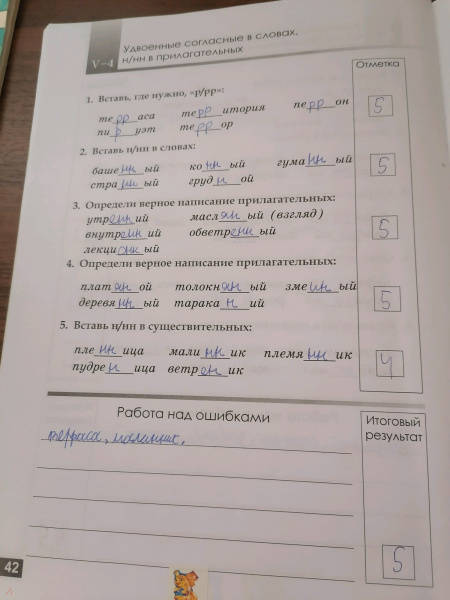 V–4
Удвоенные согласные в словах,
н/нн в прилагательных
Отметка
1. Вставь, где нужно, «р/рр»:
те рр аса те рр итория пе рр он
пи р уэт те рр ор
5
2. Вставь н/нн в словах:
баше нн ый ко нн ый гума нн ый
стра нн ый груд н ой
5
3. Определи верное написание прилагательных:
утр енн ий масл ян ый (взгляд)
внутр енн ий обветр енн ый
лекци онн ый
5
4. Определи верное написание прилагательных:
плат ян ой толокн ян ый зме ин ый
деревя нн ый таракa н ий
5
5. Вставь н/нн в существительных:
пле нн ица мали нн ик племя нн ик
пудре н ица ветр ен ик
4
Работа над ошибками
Итоговый
результат
терраса,
5
42